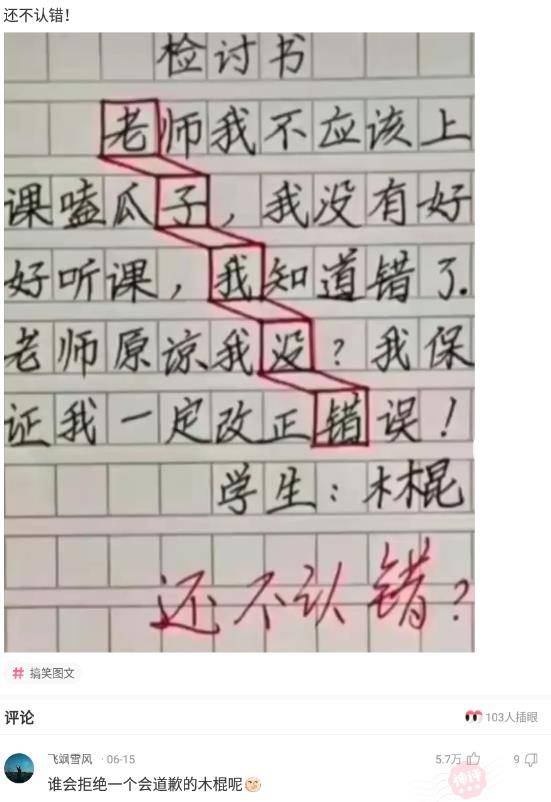 还不认错！
检讨书
老师我不应该上
课嗑瓜子，我没有好
好听课，我知道错了.
老师原谅我没？我保
证我一定改正错误！
学生：木棍
还不认错？
# 搞笑图文
评论
103人插眼
飞飒雪风 · 06-15
5.7万
9
谁会拒绝一个会道歉的木棍呢
神评